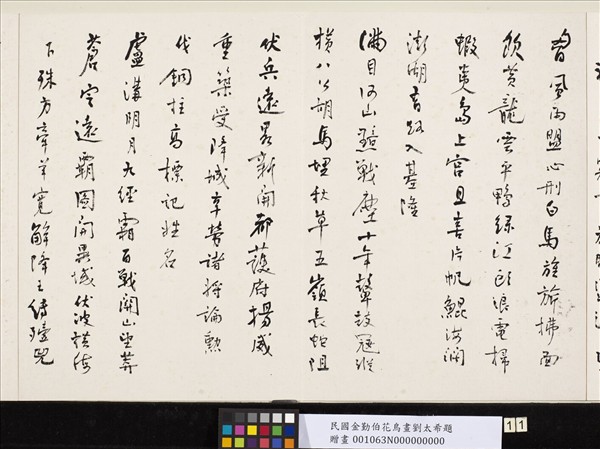 風雨盟心刑白馬旌旆拂面
飲黃龍雲平鴨綠江頭浪電掃
蝦夷島上宮且喜片帆鯤海闊
澎湖首路入基隆
滿目河山黯戰塵十年鼙鼓寇縱
橫八公胡馬埋秋草五嶺長蛇阻
伏兵遠略新開都護府揚威
重築受降城辛勞諸將論勳
伐銅柱高標記姓名
盧溝明月九經霜百戰關山坐莽
蒼定遠霸圖開異域伏波橫海
下殊方牽羊寬解降王縛兕
民國金勤伯花鳥畫劉太希題
贈畫 001063N000000000
11